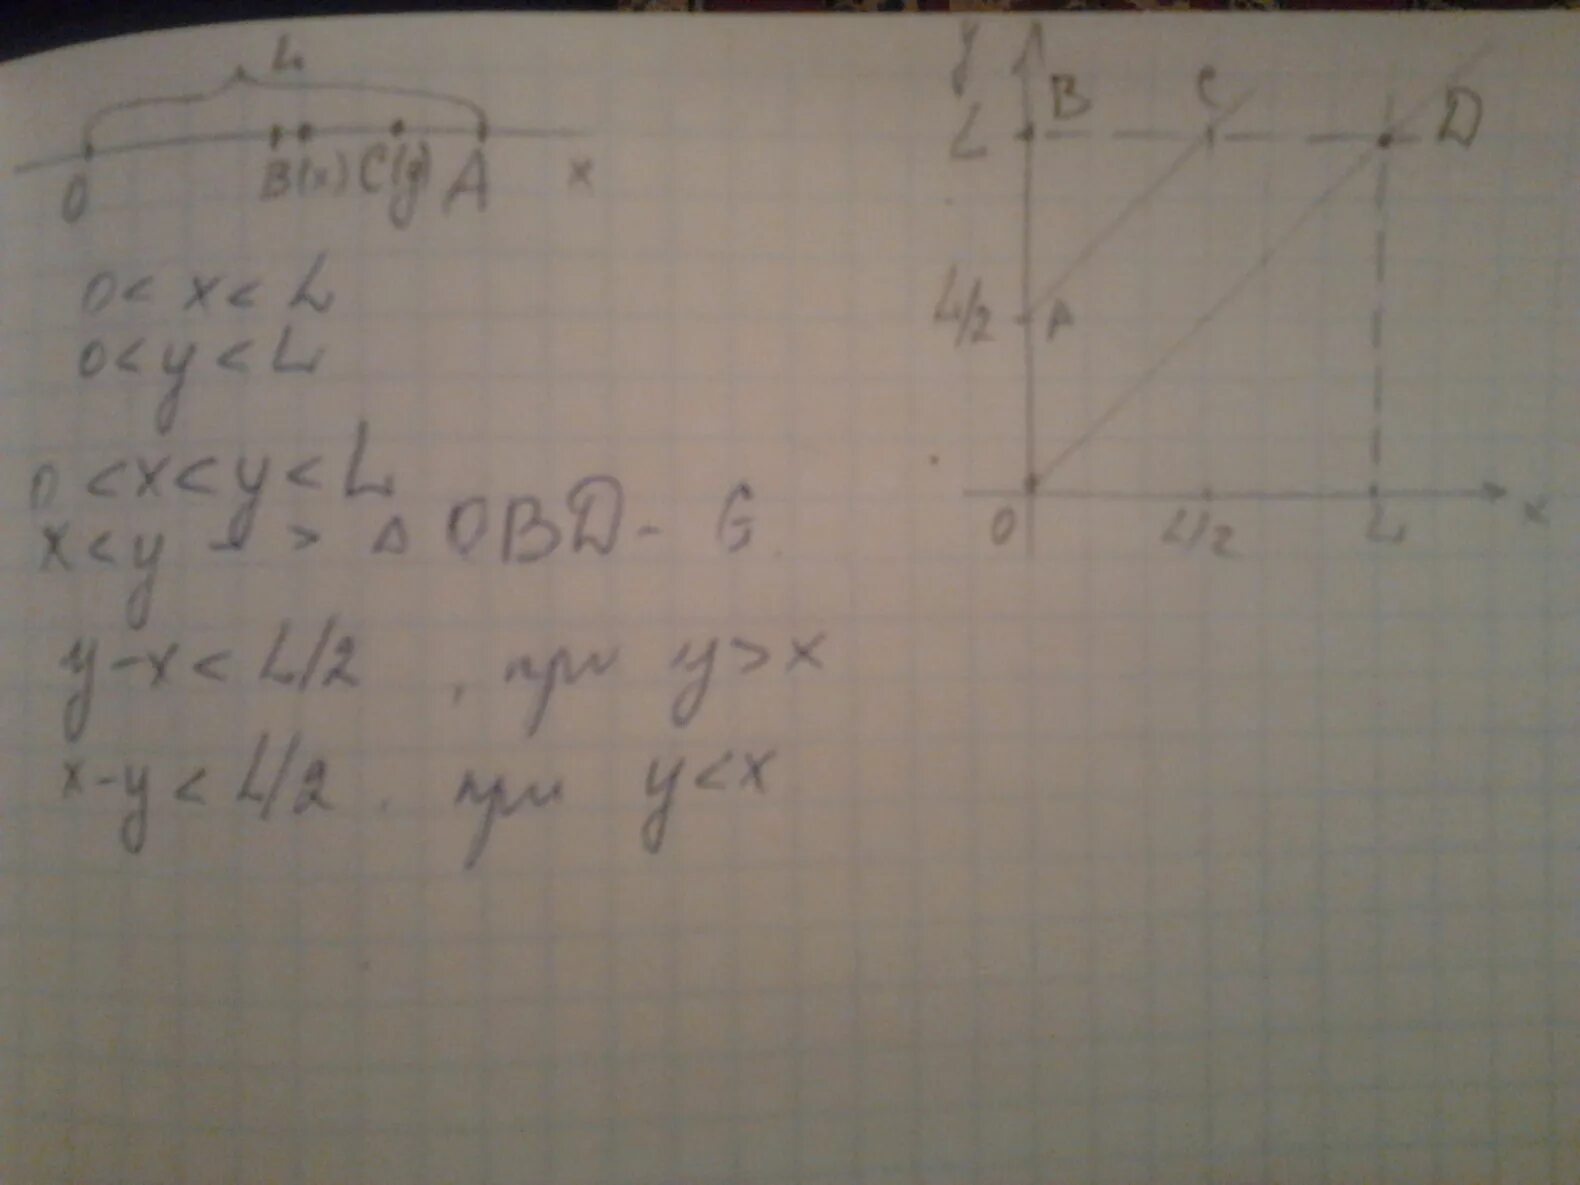 L
O B(x) C(y) A x
0 < x < L
0 < y < L
0 < x < y < L
x < y -> Δ OBD - G
y - x < L/2 , при y > x
x - y < L/2 . при y < x
y
L B C D
L/2 A
O L/2 L x